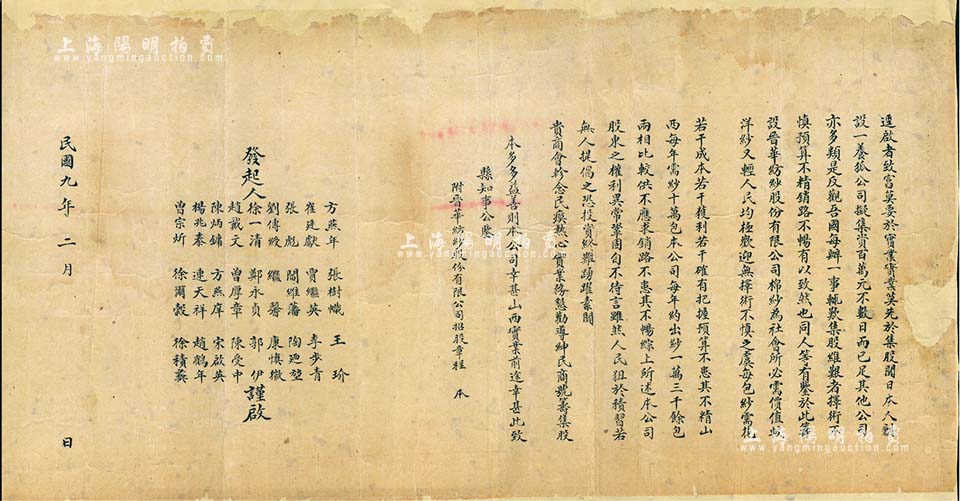 逕啟者致富莫要於實業實業莫先於集股聞日本人創
設一養狐公司擬集資百萬元不數日而已足其他公司
亦多類是反觀吾國每辦一事輒歎集股維艱者擇術不
慎預算不精銷路不暢有以致然也同人等有鑒於此籌
設晉華紡紗股份有限公司棉紗為社會所必需價值較
洋紗又輕人民均極歡迎無擇術不慎之虞每包紗需花
若干成本若干獲利若干確有把握預算不患其不精山
西每年需紗十萬包本公司每年約出紗一萬三千餘包
兩相比較供不應求銷路不患其不暢綜上所述本公司
股東之權利異常鞏固自不待言雖然人民狃於積習若
無人提倡之恐投資終難踴躍素聞
貴商會軫念民瘼熱心實業務懇勸導紳民商號籌集股
本多多益善則本公司幸甚山西實業前途幸甚此致
縣知事公鑒
附晉華紡紗股份有限公司招股章程 本
發起人
方燕年 張樹幟 王 玠
崔廷獻 賈繼英 李步青
張 彪 閻維藩 陶廼堃
劉傳綬 繼馨 康慎徽
徐一清 鄭永貞 郭 伊
趙戴文 曾厚章 陳受中
陳炳鏞 方燕庠 宋啟英
楊兆泰 連天祥 趙鶴年
曾宗炘 徐爾縠 徐積蓁
謹啟
民國九年 二 月 日
上海陽明拍賣
www.yangmingauction.com
上海陽明拍賣
www.yangmingauction.com
上海陽明拍賣
www.yangmingauction.com
上海陽明拍賣
www.yangmingauction.com
上海陽明拍賣
www.yangmingauction.com